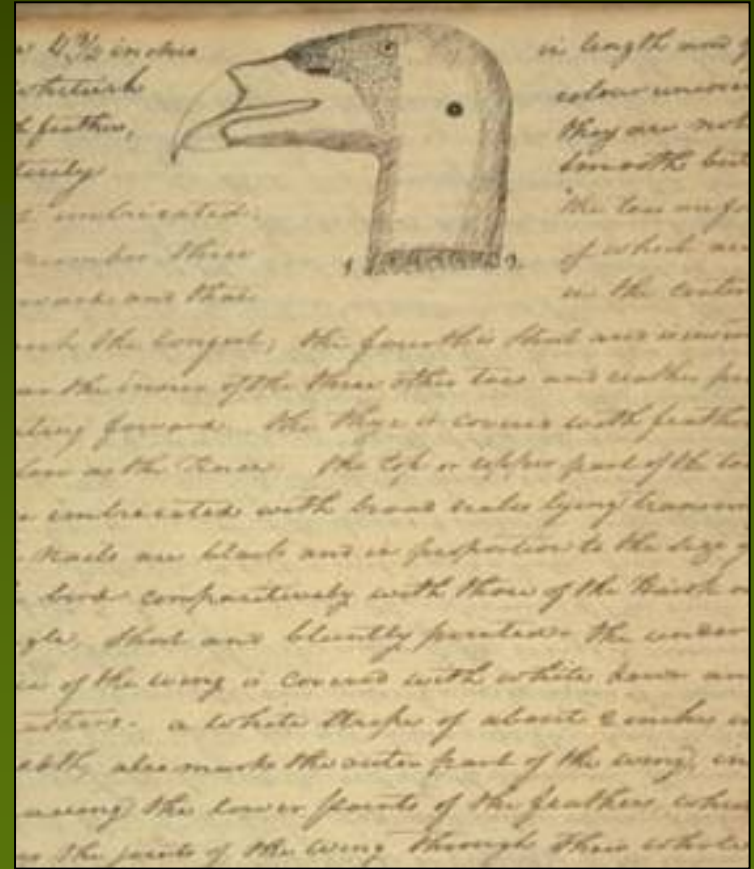 4 3/4 inches in length and
whiteish colour uncove
feather, they are not
tirely smooth but
imbricated. the toes are fo
number three of which are
ward and that in the center
much the longest; the fourth is short and is inse
the inner of the three other toes and rather pro
ting forward. the thye is covered with feathe
low as the Knee. the top or upper part of the to
imbricated with broad scales lying transve
nails are black and in proportion to the size of
bird comparitively with those of the Hawk or
gle, short and bluntly pointed. the under
of the wing is covered with white down and
feathers. a white stripe of about 2 inches in
also marks the outer part of the wing, im
the lower points of the feathers, which
the joints of the wing through their whole